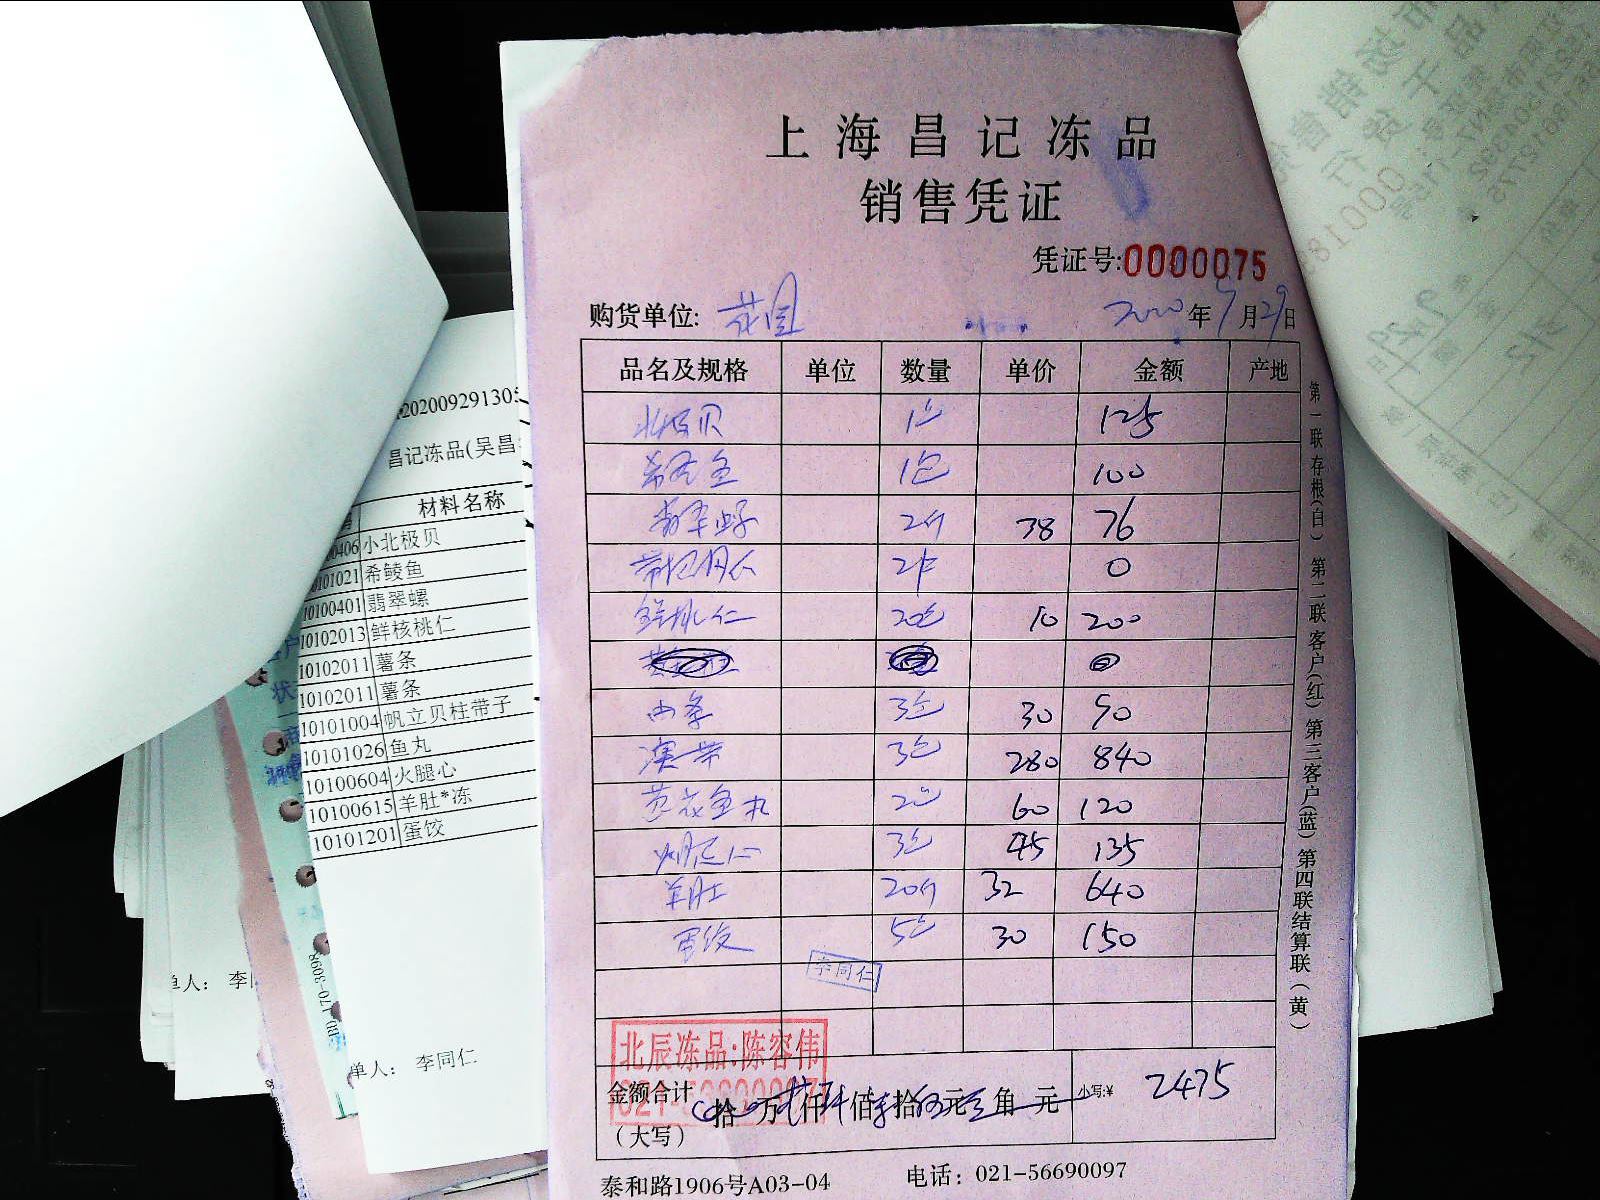 上海昌记冻品
销售凭证
凭证号:0000075
购货单位: 花园 2020年9月29日
品名及规格 单位 数量 单价 金额 产地
北极贝 1包 125
希鲮鱼 1包 100
翡翠螺 2斤 38 76
2 0
鲜桃仁 20包 10 200
3包 30 90
澳带 3包 280 840
黄花鱼丸 2包 60 120
3包 45 135
羊肚 20斤 32 640
蛋饺 5包 30 150
李同仁
北辰冻品:陈容伟
金额合计
(大写)
拾 万 仟 佰 拾 元 角 元 小写:¥ 2475
泰和路1906号A03-04 电话: 021-56690097
第一联存根(白) 第二联客户(红) 第三客户(蓝) 第四联结算联(黄)
20200929130
昌记冻品(吴昌
材料名称
0406 小北极贝
0101021 希鲮鱼
10100401 翡翠螺
10102013 鲜核桃仁
10102011 薯条
10102011 薯条
10101004 帆立贝柱带子
10101026 鱼丸
10100604 火腿心
10100615 羊肚*冻
10101201 蛋饺
单人: 李同仁
单人: 李同